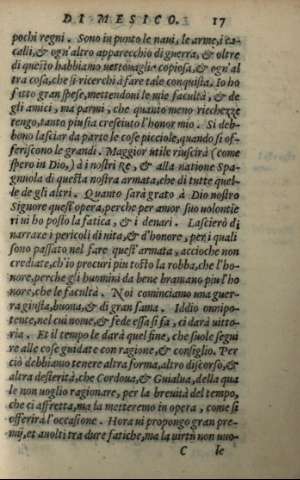 DI MESICO. 17
pochi regni. Sono in punto le naui, le arme, i ca-
ualli, & ogn'altro apparecchio di guerra, & oltre
di questo habbiamo uettouaglia copiosa, & ogn'al
tra cosa, che si ricerchi à fare tale conquista. Io ho
fatto gran spese, mettendoni le mie facultà, & de
gli amici, ma parmi, che quanto meno ricchezze
tengo, tanto piu sia cresciuto l'honor mio. Si deb-
bono lasciar da parte le cose picciole, quando si of-
feriscono le grandi. Maggior utile riuscirà (come
spero in Dio,) à i nostri Re, & alla natione Spa-
gnuola di questa nostra armata, che di tutte quel-
le de gli altri. Quanto sarà grato à Dio nostro
Signore quest'opera, perche per amor suo uolontie
ri ui ho posto la fatica, & i denari. Lascierò di
narrare i pericoli di uita, & d'honore, per i quali
sono passato nel fare quest'armata, accioche non
crediate, ch'io procuri piu tosto la robba, che l'ho-
nore, perche gli huomini da bene bramano piu l'ho
nore, che le facultà. Noi cominciamo una guer-
ra giusta, buona, & di gran fama. Iddio onnipo-
tente, nel cui nome, & fede essa si fa, ci darà uitto-
ria. Et il tempo le darà quel fine, che suole segui
re alle cose guidate con ragione, & consiglio. Per
ciò debbiamo tenere altra forma, altro discorso, &
altra desterità, che Cordoua, & Guialua, della qua
le non uoglio ragionare, per la breuità del tempo,
che ci affretta, ma la metteremo in opera, come si
offerirà l'occasione. Hora ui propongo gran pre-
mij, et auolti tra dure fatiche, ma la uirtù non uuo-
C le